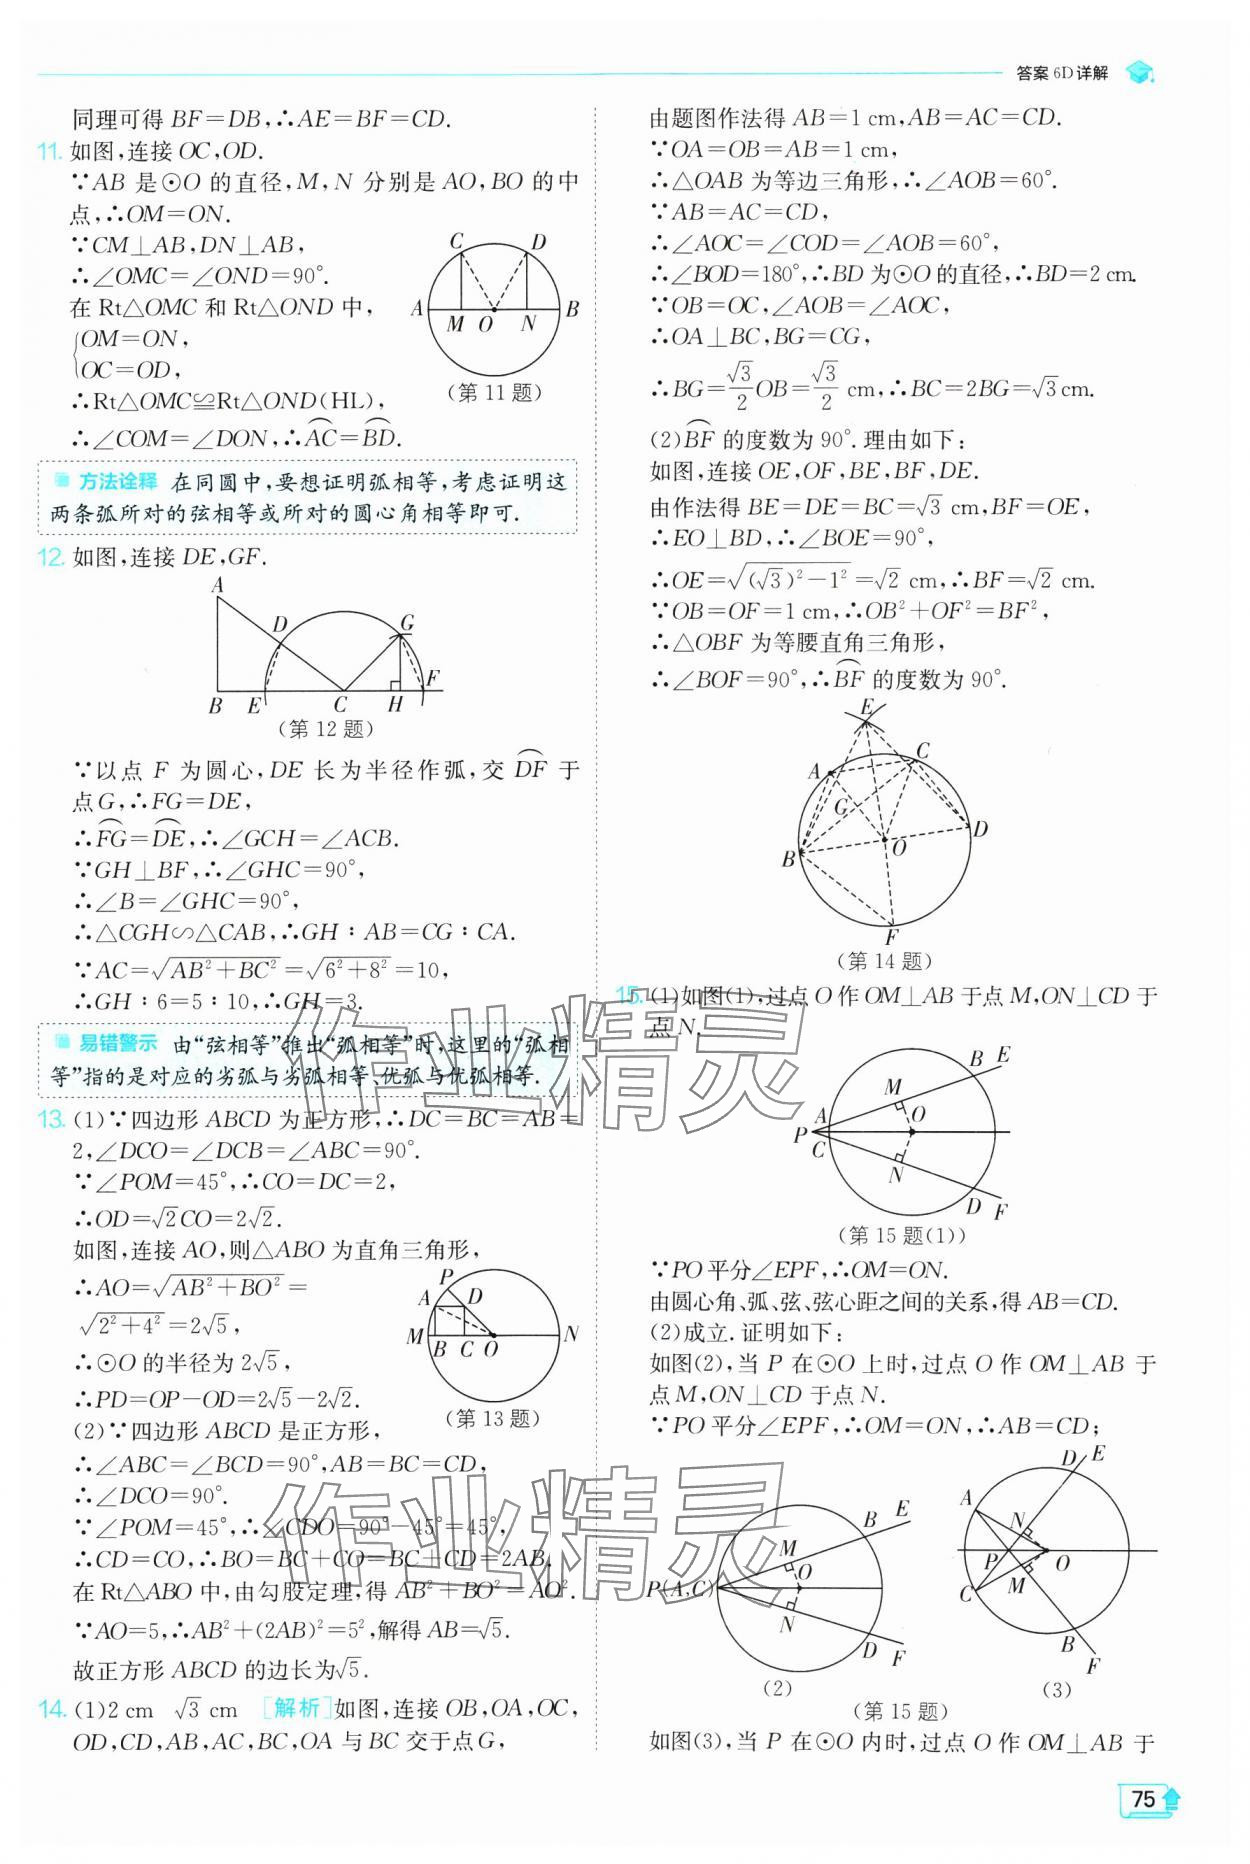 答案 6D 详解
同理可得 BF=DB,∴AE=BF=CD.
11. 如图,连接 OC,OD.
∵AB 是⊙O 的直径,M,N 分别是 AO,BO 的中
点,∴OM=ON.
∵CM⊥AB,DN⊥AB,
∴∠OMC=∠OND=90°.
在 Rt△OMC 和 Rt△OND 中,
{OM=ON,
OC=OD,
∴Rt△OMC≌Rt△OND(HL),
∴∠COM=∠DON,∴⌒AC=⌒BD.
C D
A M O N B
(第 11 题)
方法诠释 在同圆中,要想证明弧相等,考虑证明这
两条弧所对的弦相等或所对的圆心角相等即可.
12. 如图,连接 DE,GF.
A
D G
F
B E C H
(第 12 题)
∵以点 F 为圆心,DE 长为半径作弧,交 ⌒DF 于
点G,∴FG=DE,
∴⌒FG=⌒DE,∴∠GCH=∠ACB.
∵GH⊥BF,∴∠GHC=90°,
∴∠B=∠GHC=90°,
∴△CGH∽△CAB,∴GH∶AB=CG∶CA.
∵AC=√(AB²+BC²)=√(6²+8²)=10,
∴GH∶6=5∶10,∴GH=3.
易错警示 由“弦相等”推出“弧相等”时,这里的“弧相
等”指的是对应的劣弧与劣弧相等、优弧与优弧相等.
13. (1)∵四边形 ABCD 为正方形,∴DC=BC=AB=
2,∠DCO=∠DCB=∠ABC=90°.
∵∠POM=45°,∴CO=DC=2,
∴OD=√2CO=2√2.
如图,连接 AO,则△ABO 为直角三角形,
∴AO=√(AB²+BO²)=
√(2²+4²)=2√5,
∴⊙O 的半径为 2√5,
∴PD=OP-OD=2√5-2√2.
P
A D
M B C O N
(第 13 题)
(2)∵四边形 ABCD 是正方形,
∴∠ABC=∠BCD=90°,AB=BC=CD,
∴∠DCO=90°.
∵∠POM=45°,∴∠CDO=90°-45°=45°,
∴CD=CO,∴BO=BC+CO=BC+CD=2AB.
在 Rt△ABO 中,由勾股定理,得 AB²+BO²=AO².
∵AO=5,∴AB²+(2AB)²=5²,解得 AB=√5.
故正方形 ABCD 的边长为√5.
14. (1)2 cm √3 cm [解析]如图,连接 OB,OA,OC,
OD,CD,AB,AC,BC,OA 与 BC 交于点 G,
由题图作法得 AB=1 cm,AB=AC=CD.
∵OA=OB=AB=1 cm,
∴△OAB 为等边三角形,∴∠AOB=60°.
∵AB=AC=CD,
∴∠AOC=∠COD=∠AOB=60°,
∴∠BOD=180°,∴BD 为⊙O 的直径,∴BD=2 cm.
∵OB=OC,∠AOB=∠AOC,
∴OA⊥BC,BG=CG,
∴BG=√3/2 OB=√3/2 cm,∴BC=2BG=√3cm.
(2)⌒BF 的度数为 90°.理由如下:
如图,连接 OE,OF,BE,BF,DE.
由作法得 BE=DE=BC=√3 cm,BF=OE,
∴EO⊥BD,∴∠BOE=90°,
∴OE=√((√3)²-1²)=√2 cm,∴BF=√2 cm.
∵OB=OF=1 cm,∴OB²+OF²=BF²,
∴△OBF 为等腰直角三角形,
∴∠BOF=90°,∴⌒BF 的度数为 90°.
E
C
A
G
D
O
B
F
(第 14 题)
15. (1)如图(1),过点 O 作 OM⊥AB 于点 M,ON⊥CD 于
点 N.
B E
M
A O
P
C
N
D F
(第 15 题(1))
∵PO 平分∠EPF,∴OM=ON.
由圆心角、弧、弦、弦心距之间的关系,得 AB=CD.
(2)成立.证明如下:
如图(2),当 P 在⊙O 上时,过点 O 作 OM⊥AB 于
点 M,ON⊥CD 于点 N.
∵PO 平分∠EPF,∴OM=ON,∴AB=CD;
B E
M
O
P(A,C)
N
D F
(2)
D E
A
N
P O
M
C
B
F
(3)
(第 15 题)
如图(3),当 P 在⊙O 内时,过点 O 作 OM⊥AB 于
75
作业精灵
作业精灵